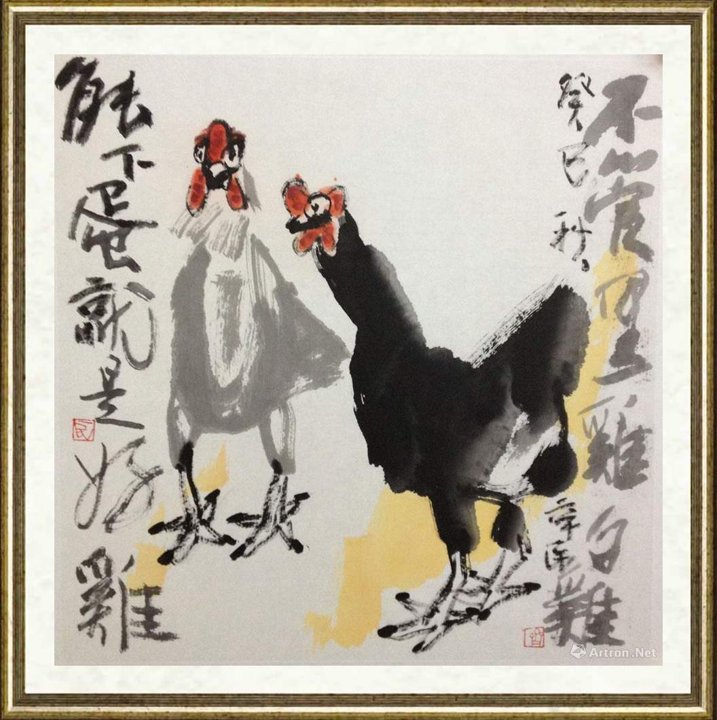 不管黑雞白雞
癸巳秋
能下蛋就是好雞
民
Artron.Net